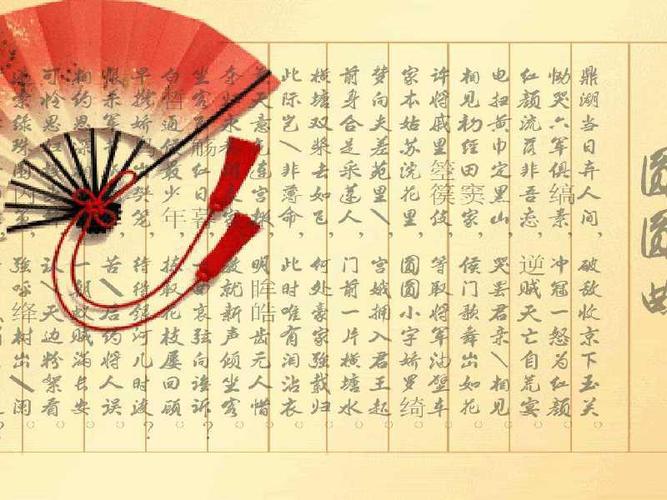 圆圆曲
鼎湖当日弃人间，破敌收京下玉关。
恸哭六军俱缟素，冲冠一怒为红颜。
红颜流落非吾恋，逆贼天亡自荒宴。
电扫黄巾定黑山，哭罢君亲\相见。
相见初经田窦家，侯门歌舞出如花。
许将戚里箜篌伎，等取将军油壁车。
家本姑苏浣花里，圆圆小字娇罗绮。
梦向夫差苑里\，宫娥拥入君王起。
前身合是采莲人，门前一片横塘水。
横塘双桨去如飞，何处豪家强载归。
此际岂\非薄命，此时唯有泪沾衣。
天意连宫掖，明眸皓齿无人惜。
永教就新声倾坐客。
坐客觞红日暮，一哀弦向谁诉？
白皙通侯最少年，拣取花枝屡回顾。
早携娇出笼，待得银河几时渡？
恨杀军苦\后约将人误。
相约恩深一朝满长安。
可怜思认\天边粉絮看。
索绿珠围内强呼绛树出\阑